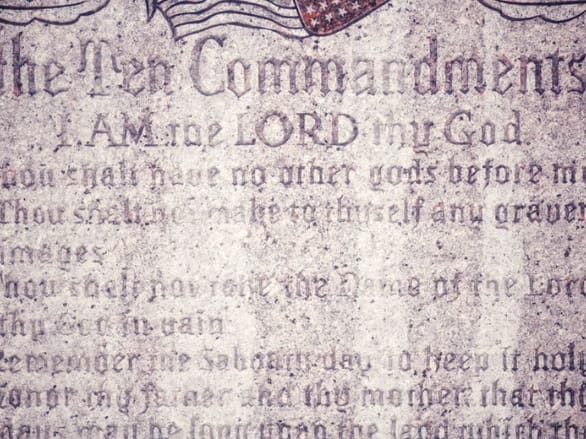 the Ten Commandments
I AM the LORD thy God.
Thou shalt have no other gods before me
Thou shalt not make to thyself any graven
images
Thou shalt not take the Name of the Lord
thy God in vain
Remember the Sabbath day to keep it holy
Honor thy father and thy mother that thy
days may be long upon the land which the